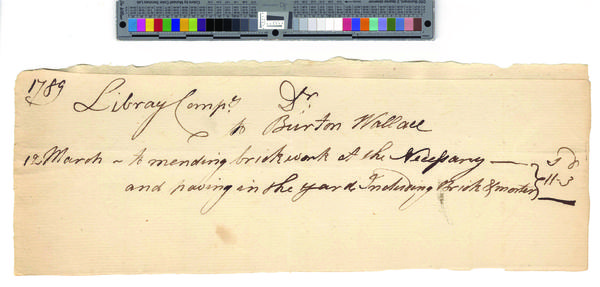 1789
Libray Compy. Dr.
to Burton Wallace
March – to mending brick work at the Necessary — s d
and paving in the yard Including Brick & morter 11-3